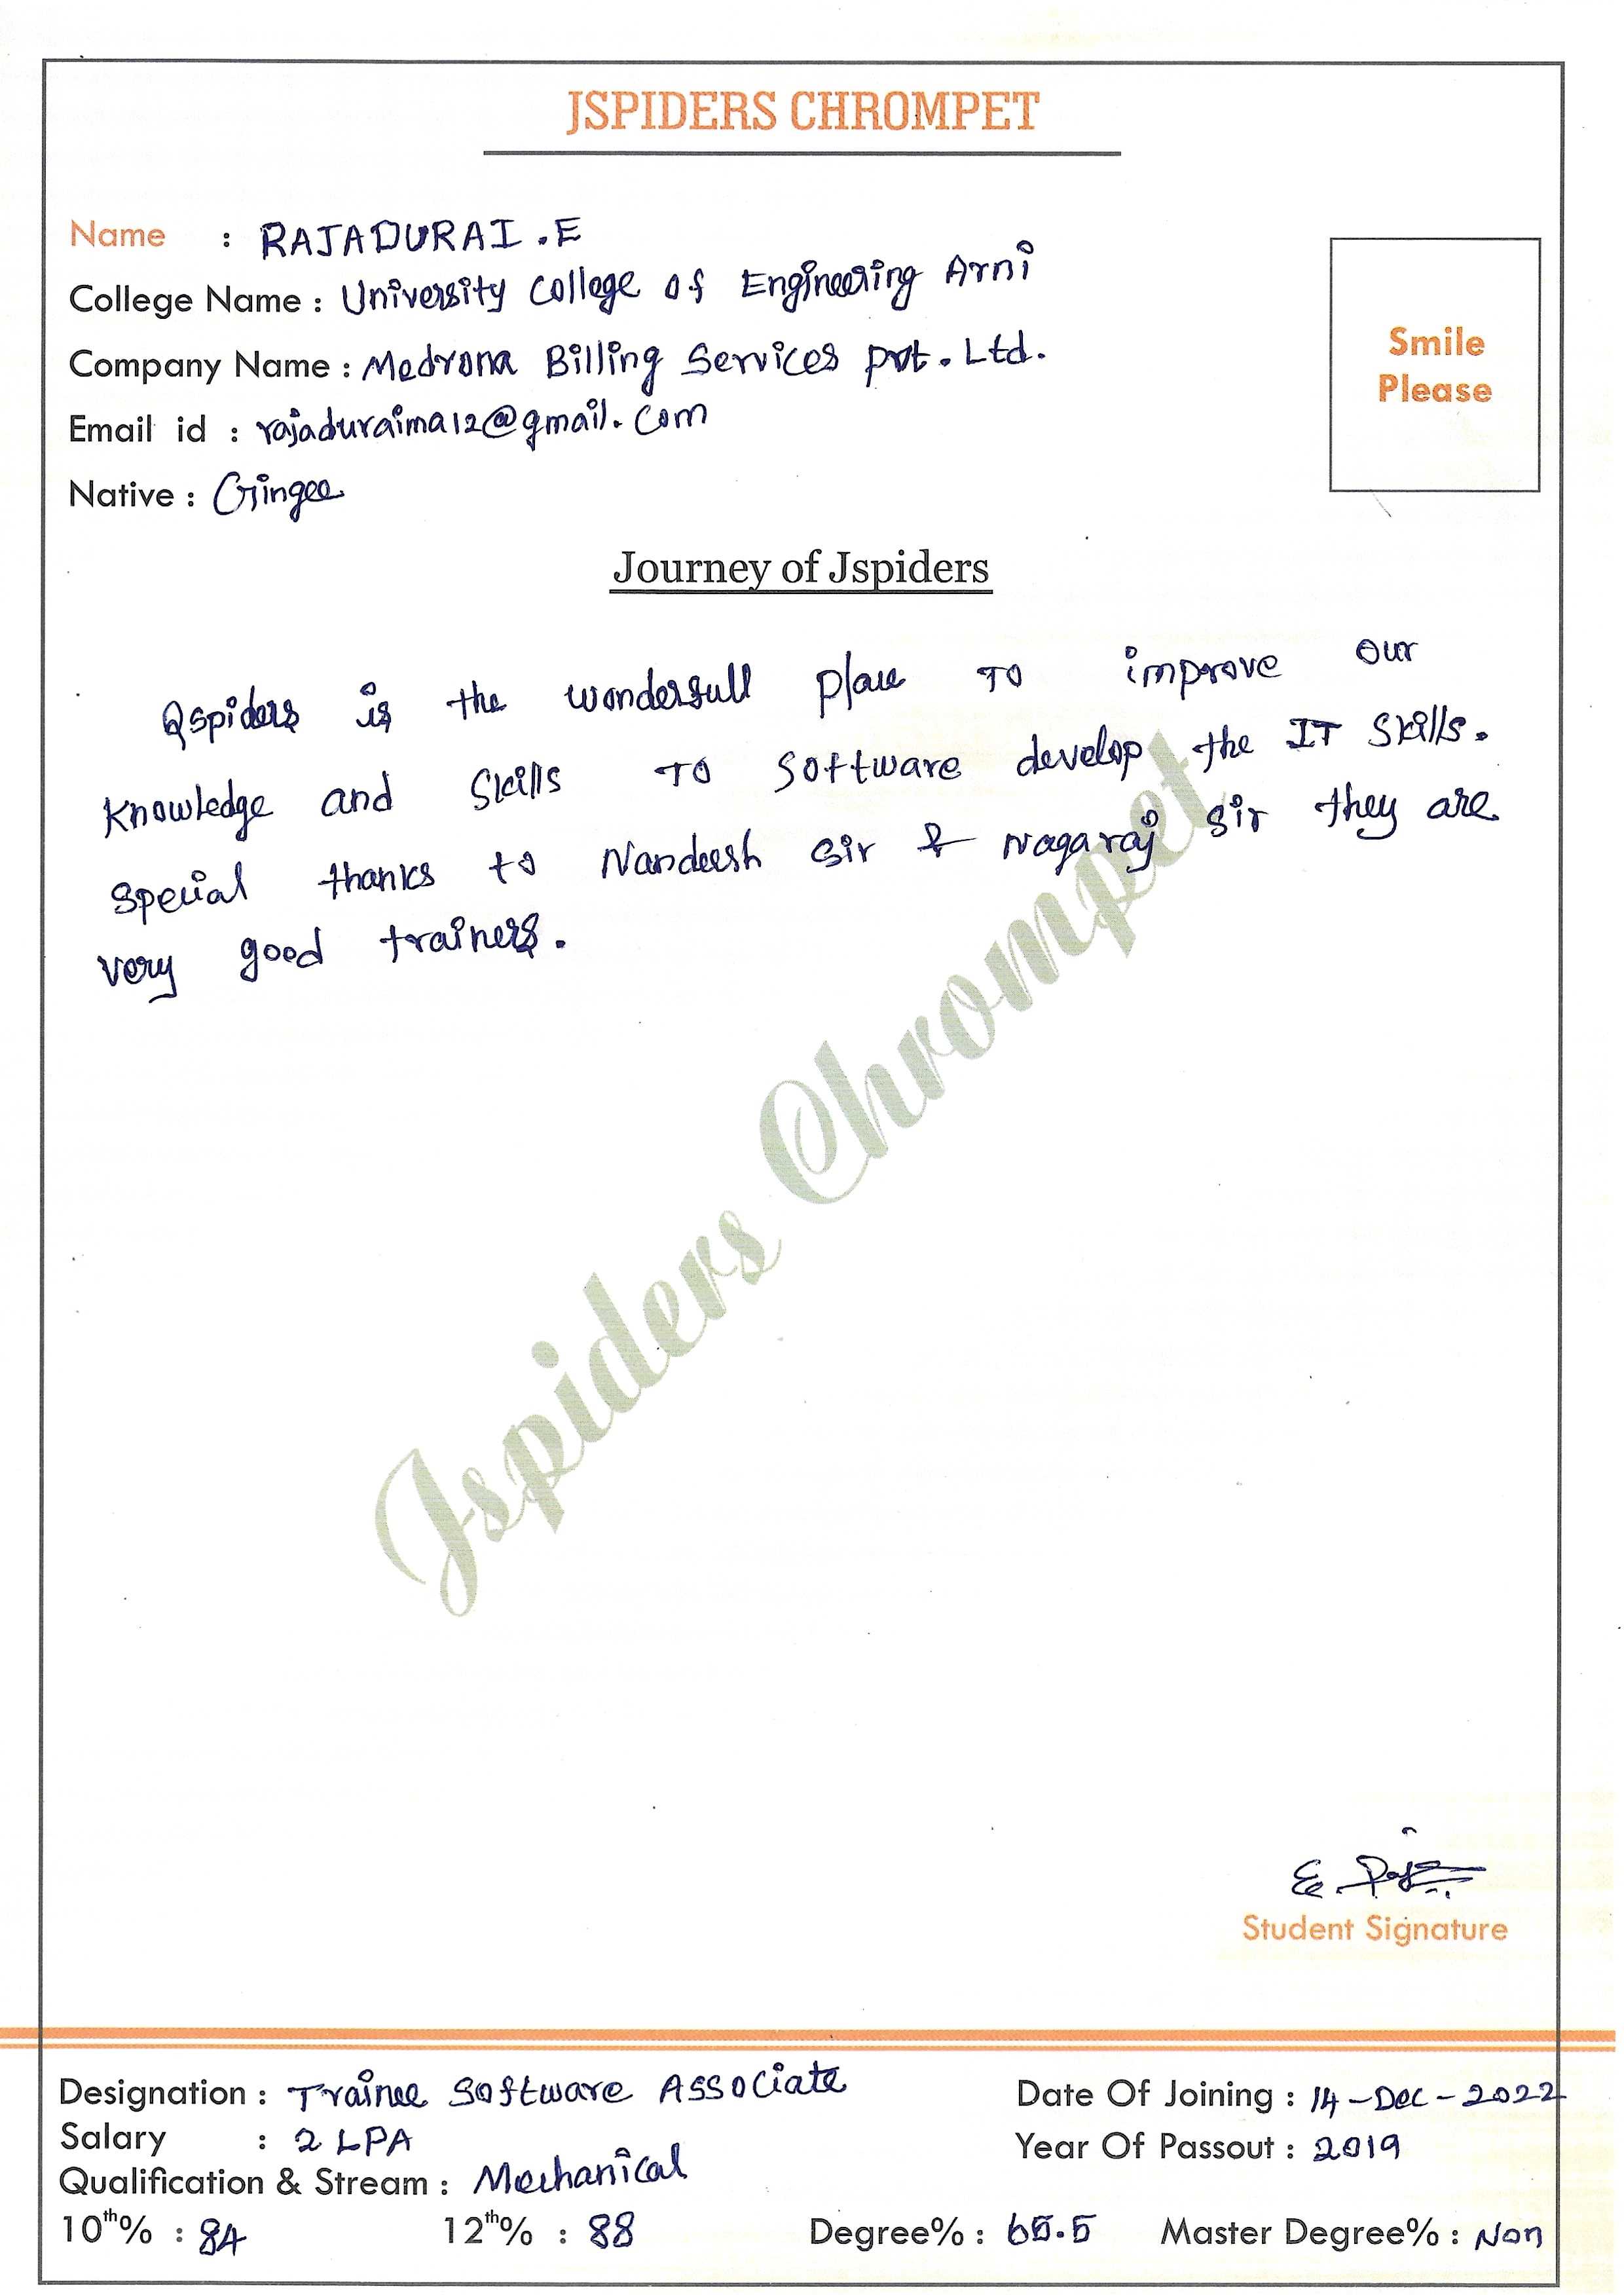 JSPIDERS CHROMPET
Name : RAJADURAI.E
College Name : University college of Engineering Arni
Company Name : Medrona Billing Services pvt. Ltd.
Email id : rajaduraima12@gmail.com
Native : Gingee
Smile
Please
Journey of Jspiders
Qspiders is the wonderfull place To improve our
knowledge and skills To software develop the IT skills.
special thanks to Nandeesh sir & Nagaraj sir they are
very good trainers.
Jspiders Chrompet
E. Raja
Student Signature
Designation : Trainee Software Associate
Date Of Joining : 14-Dec-2022
Salary : 2 LPA
Year Of Passout : 2019
Qualification & Stream : Mechanical
10th% : 84 12th% : 88 Degree% : 65.5 Master Degree% : Non